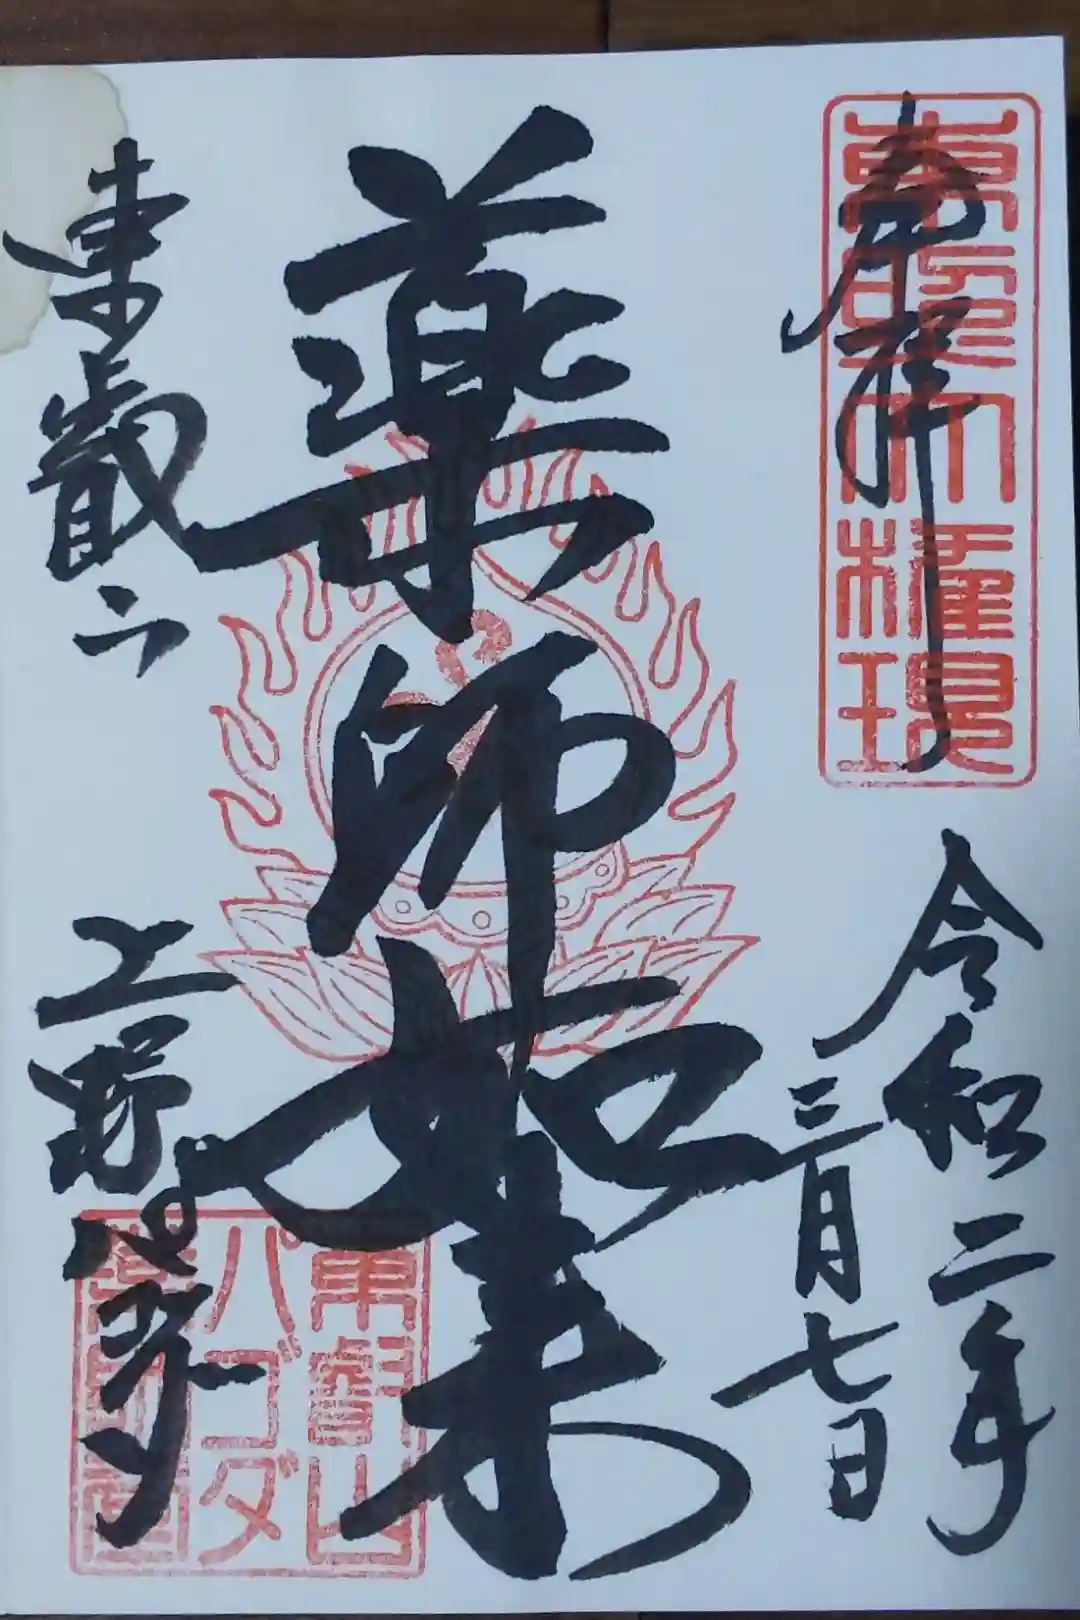 奉拝
東照大権現
令和二年
三月七日
薬師如来
東叡山
上野パゴダ
東叡山
パゴダ
薬師堂